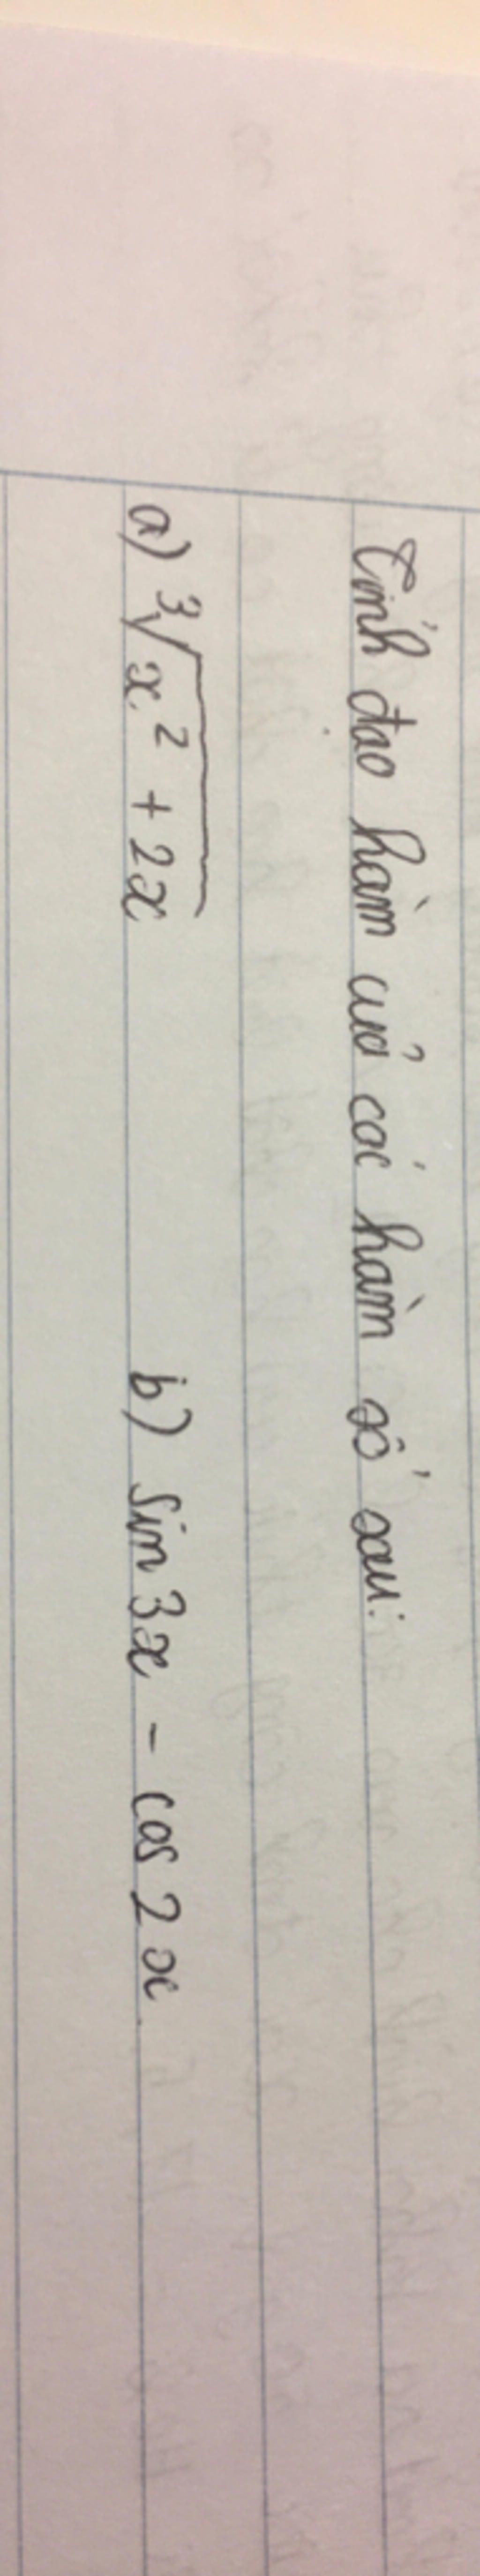 Tính đạo hàm của các hàm số sau:
a) ∛(x² + 2x) b) sin 3x - cos 2x